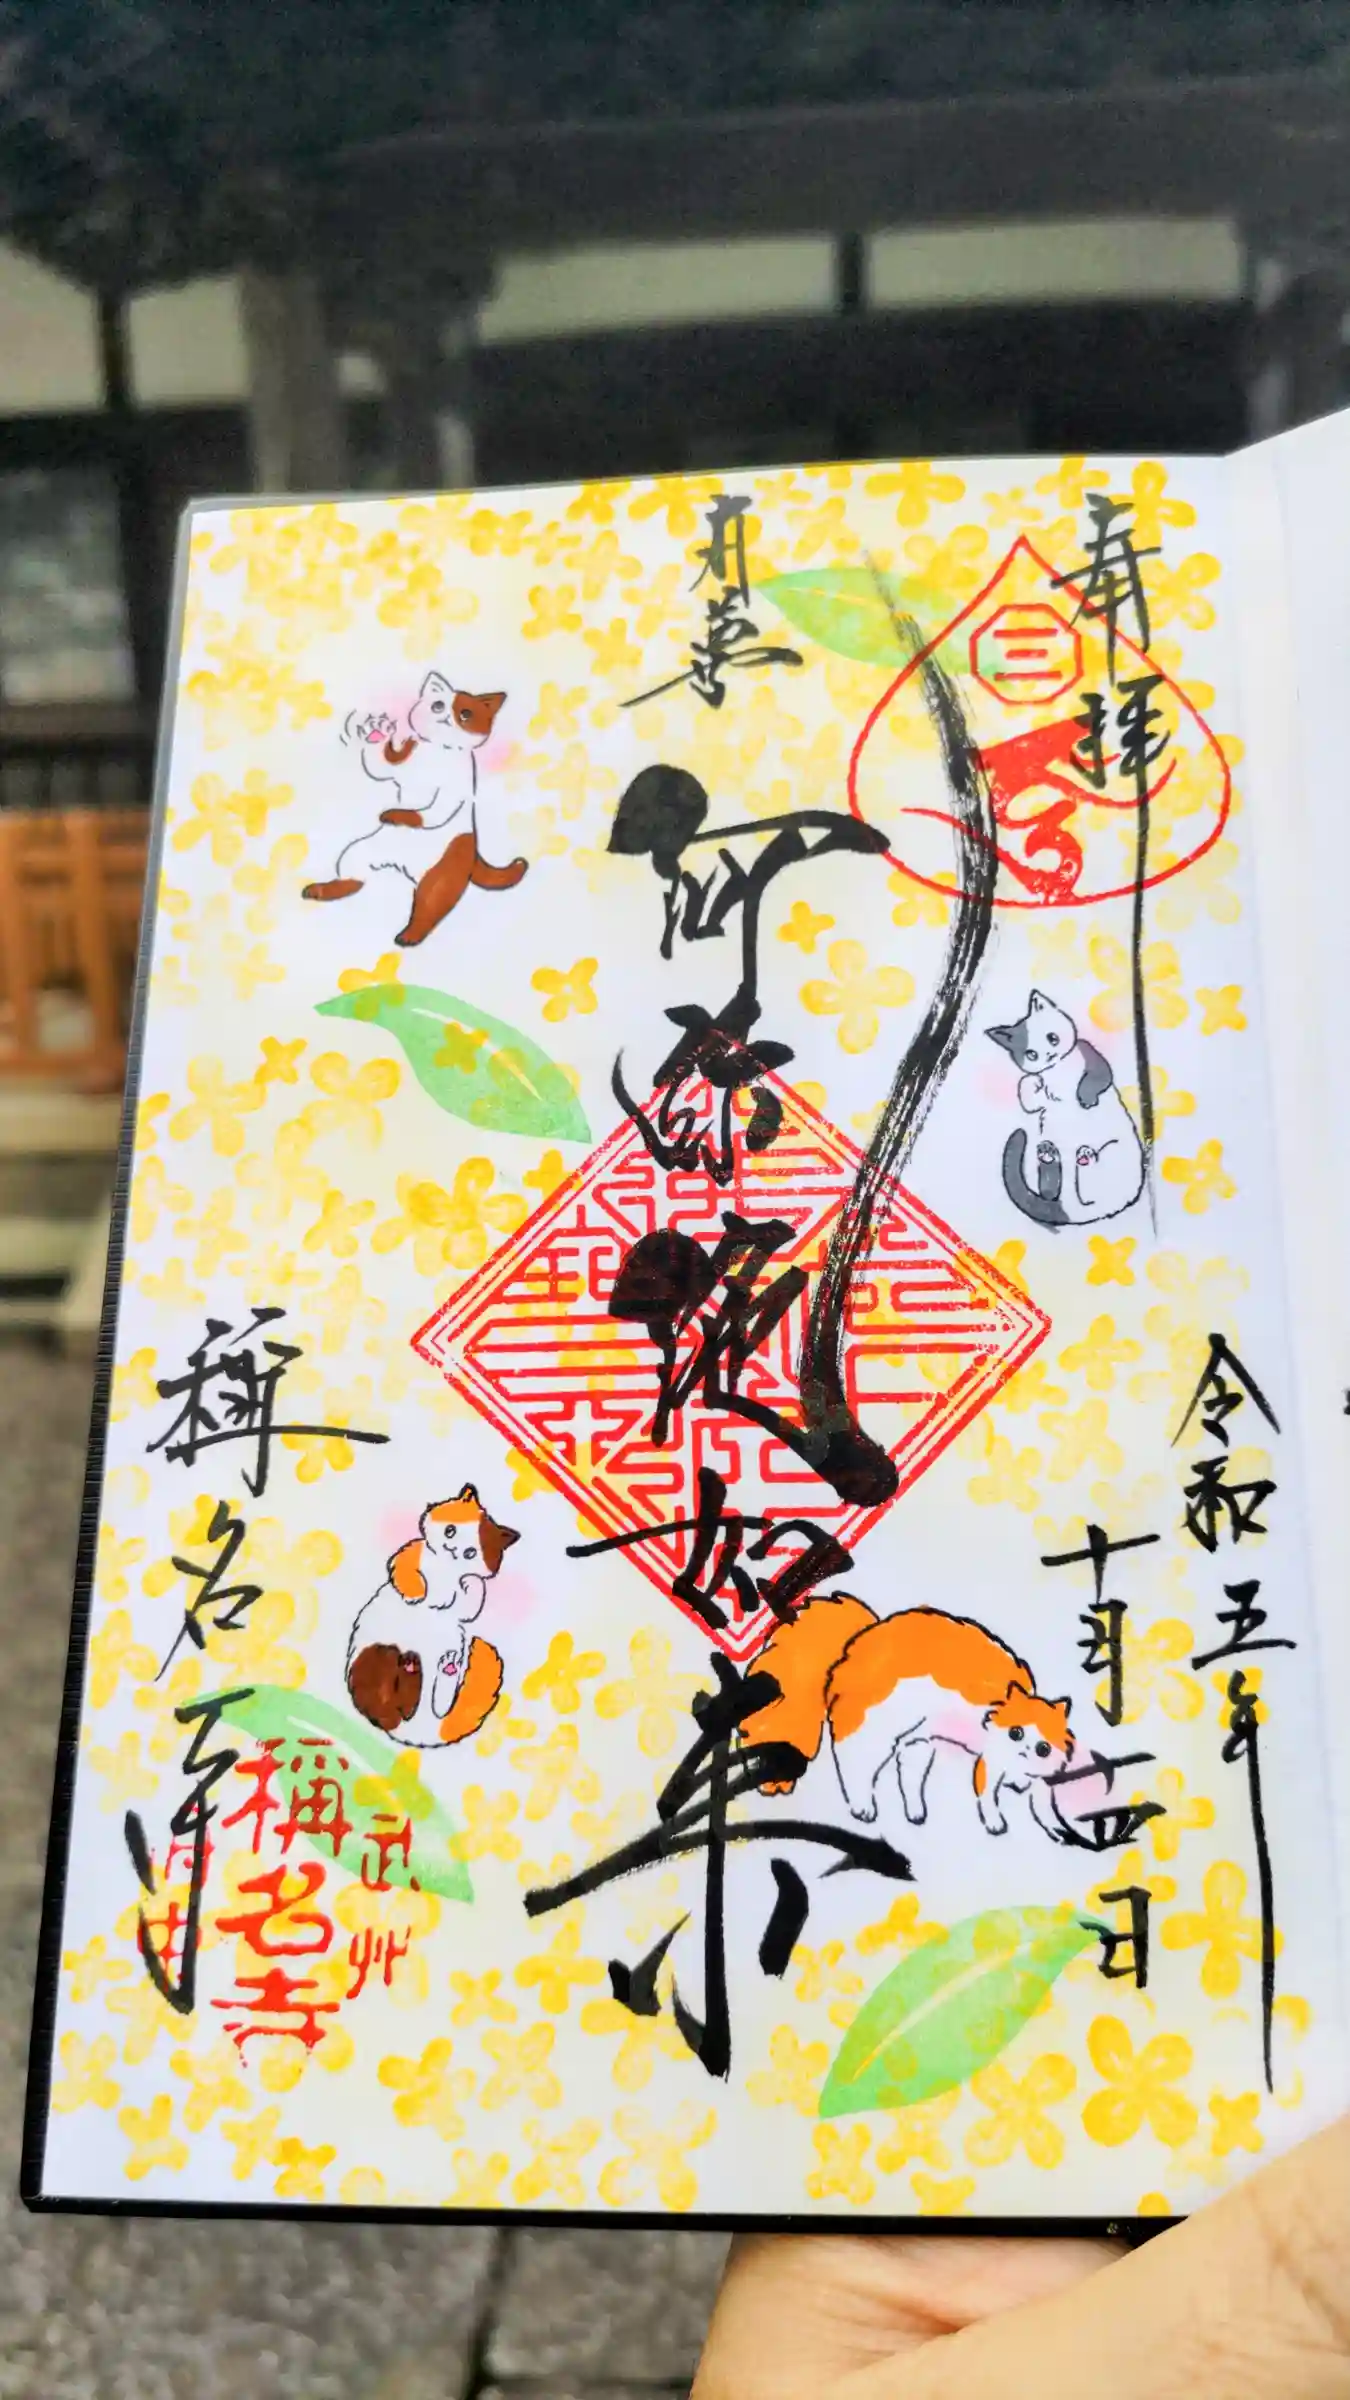 奉拝
令和五年
十月十四日
月夢
阿弥陀如来
稱名寺
三
三宝
武州
稱名寺
清田